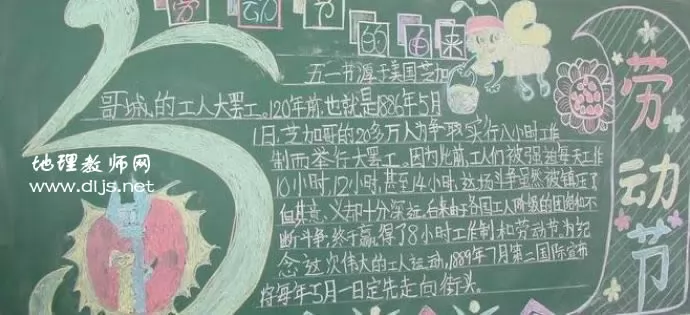 劳动节
的由来
五一节源于美国芝加
哥城的工人大罢工。120年前,也就是1886年5月
1日,芝加哥的20多万人为争取实行八小时工作
制而举行大罢工。因为此前,工人们被强迫每天工作
10小时,12小时,甚至14小时,这场斗争虽然被镇压了
但其意义却十分深远,后来由于各国工人阶级的团结和不
断斗争,终于赢得了8小时工作制和劳动节为纪
念这次伟大的工人运动,1889年7月第二国际宣布
将每年5月一日定先走向街头。
5
劳动节
地理教师网
www.dljs.net